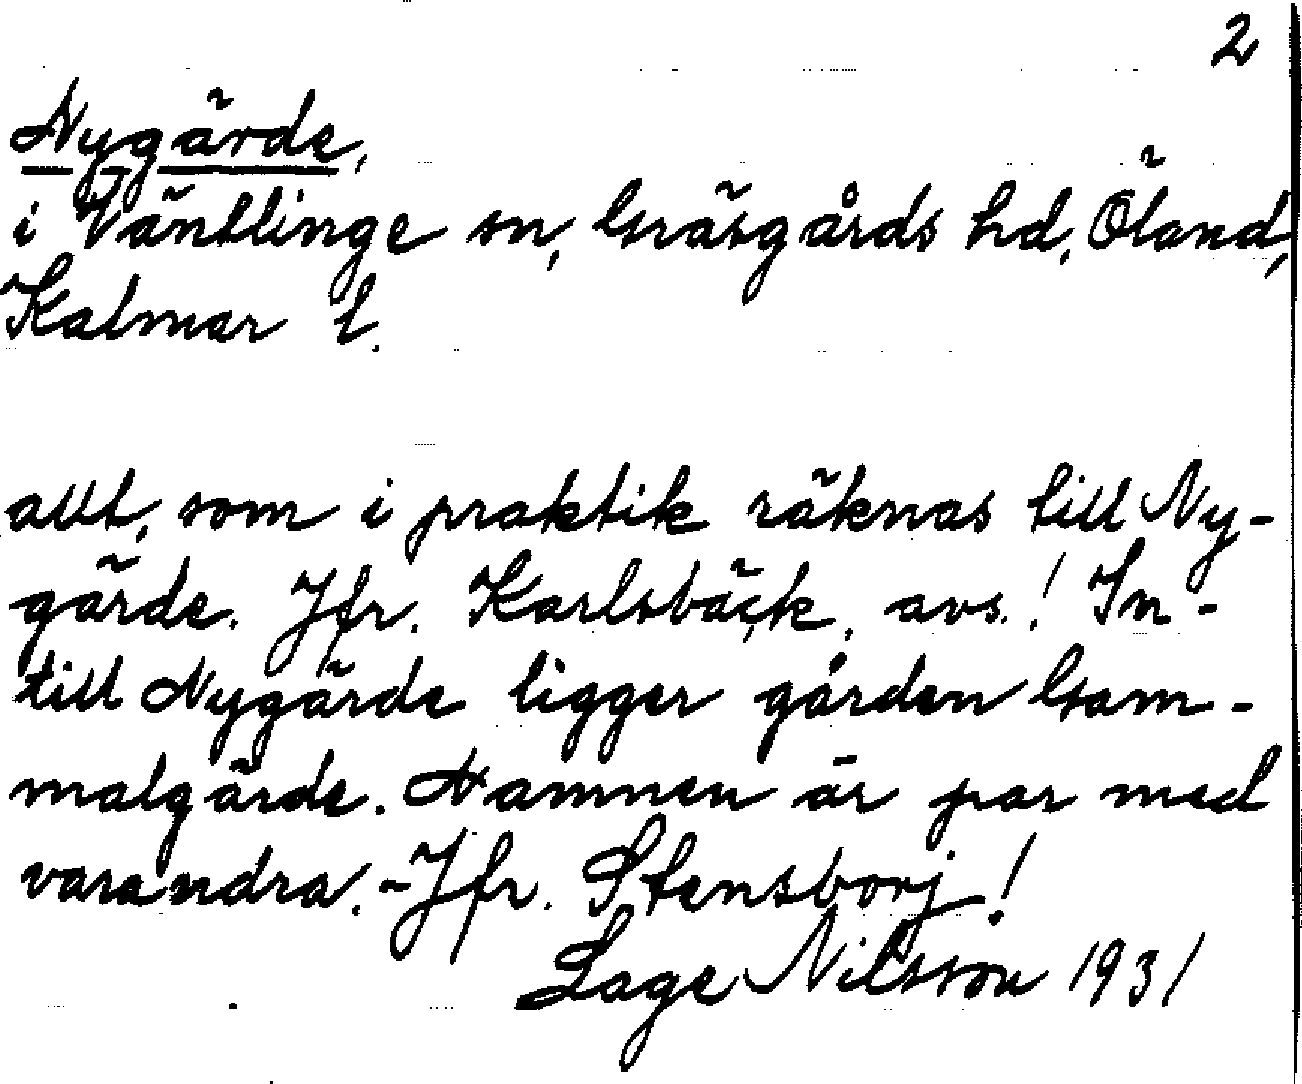 2
Nygärde,
i Väntlinge sn, Gräsgårds hd, Öland,
Kalmar l.
allt, som i praktik räknas till Ny-
gärde. Jfr. Karlsbäck, avs.! In-
till Nygärde ligger gården Gam-
malgärde. Namnen är par med
varandra. - Jfr. Stensborg!
Sage Nilsson 1931